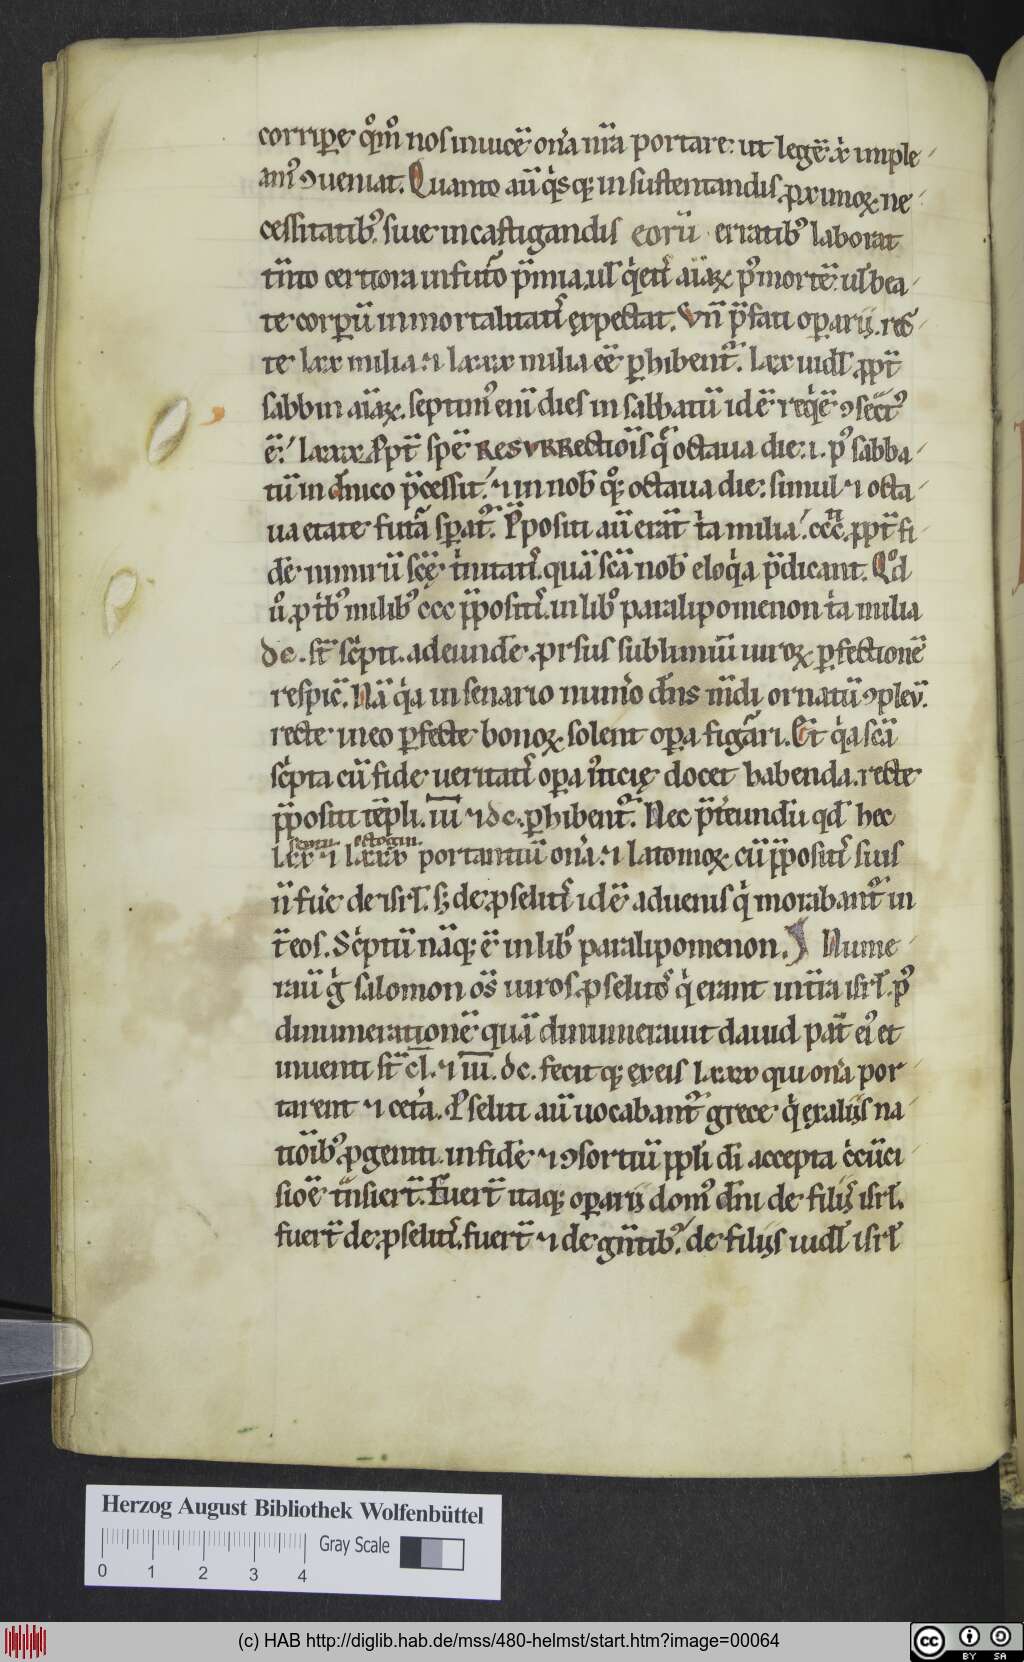 corriꝑe q̊m̊ nos inuicē on̓a nr̄a portare. ut legē xp̄i imple
am᷒ ꝯueniat. Quanto aū q̓sq; in sustentandis ꝓximoꝝ ne
cessitatib᷒. siue in castigandis eorū erratib᷒ laborat
tn̄to certiora in futo p̄mia. ul̄ q̓eti᷒ aīaꝝ p᷒ mortē. ul̄ bea
te corꝑū inmortalitati᷒ expectat. Vn̄ p̄fati oꝑarij. rec
te lxx milia ⁊ lxxx milia eē ꝑhibent᷒. lxx uidl̄ ꝓpt̄
sabbm aīaꝝ. septim᷒ enī dies in sabbatū id ē reqͥē ꝯsec̄t᷒
ē. lxxx. Ꝓpt̄ spē RESVRREctiōis q̄ octaua die .i. p᷒ sabba
tū in dn̄ico p̄cessit. ⁊ in nob̄ q̊q; octaua die. simul ⁊ octa
ua etate futa sꝑat᷒. P̄positi aū erāt tͥa milia. ccc. ꝓpt̄ fi
dē nimirū scē tͥnitati᷒. quā scā nob̄ eloqͥa p̄dicant. Qd̊
ů ꝓ tͥb᷒ milib᷒ ccc p̄positi᷒. in lib᷒ paralipomenon tͥa milia
dc. st̄ scͥpti. ad eundē ꝓrsus sublimiū uiroꝝ ꝑfectionē
respic̄. Nā qͥa in senario num̓o dn̄s m̄di ornatū ꝯpleu̅.
recte in eo ꝑfecte bonoꝝ solent oꝑa figāri. Et qͥa scā
scͥpta cū fide ueritati᷒ oꝑa iͥticię docet habenda. recte
p̄positi tēpli. iii ⁊ dc. ꝑhibent᷒. Nec p̄t̓eundū qd̄ hec
lxx ⁊ lxxx portantiū on̓a. ⁊ latomoꝝ cū p̄positi᷒ suis
n̄ fu̓e de isrl̄. s; de ꝓseliti᷒ id ē aduenis qͥ morabant᷒ in
t̄ eos. Scͥptū nāq; ē in lib᷒ paralipomenon. Nume
rau̅ gͥ salomon om̄s uiros ꝓselito᷒ qͥ erant in tr̄a isrl̄. p᷒
dinumerationē quā dinumerauit dauid pat̄ ei᷒ et
inuenti st̄ cl̄. ⁊ iii. dc. fecit q; ex eis lxxx qui on̓a por
tarent ⁊ cet̓a. Ꝓseliti aū uocabant᷒ grece qͥ ex aliis na
tiōib᷒ ꝓgeniti. in fidē ⁊ ꝯsortiū pp̄li di̅ accepta cͥcūci
siōe tn̄siert̄. Fuert̄ itaq; oꝑarij dom᷒ dn̄i de filijs isrl̄.
fuert̄ de ꝓseliti᷒. fuert̄ ⁊ de gn̄tib᷒. de filijs uidl̄ isrl̄
Herzog August Bibliothek Wolfenbüttel
Gray Scale
0 1 2 3 4
(c) HAB http://diglib.hab.de/mss/480-helmst/start.htm?image=00064
cc BY SA